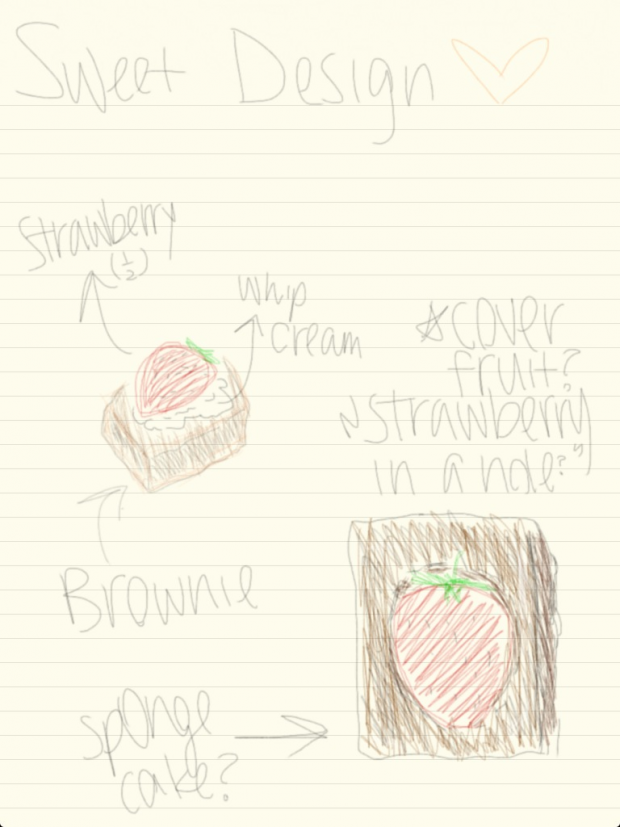 Sweet Design
Strawberry
(½)
Whip
cream
☆cover
fruit?
~strawberry
in a hole?"
Brownie
sponge
cake?